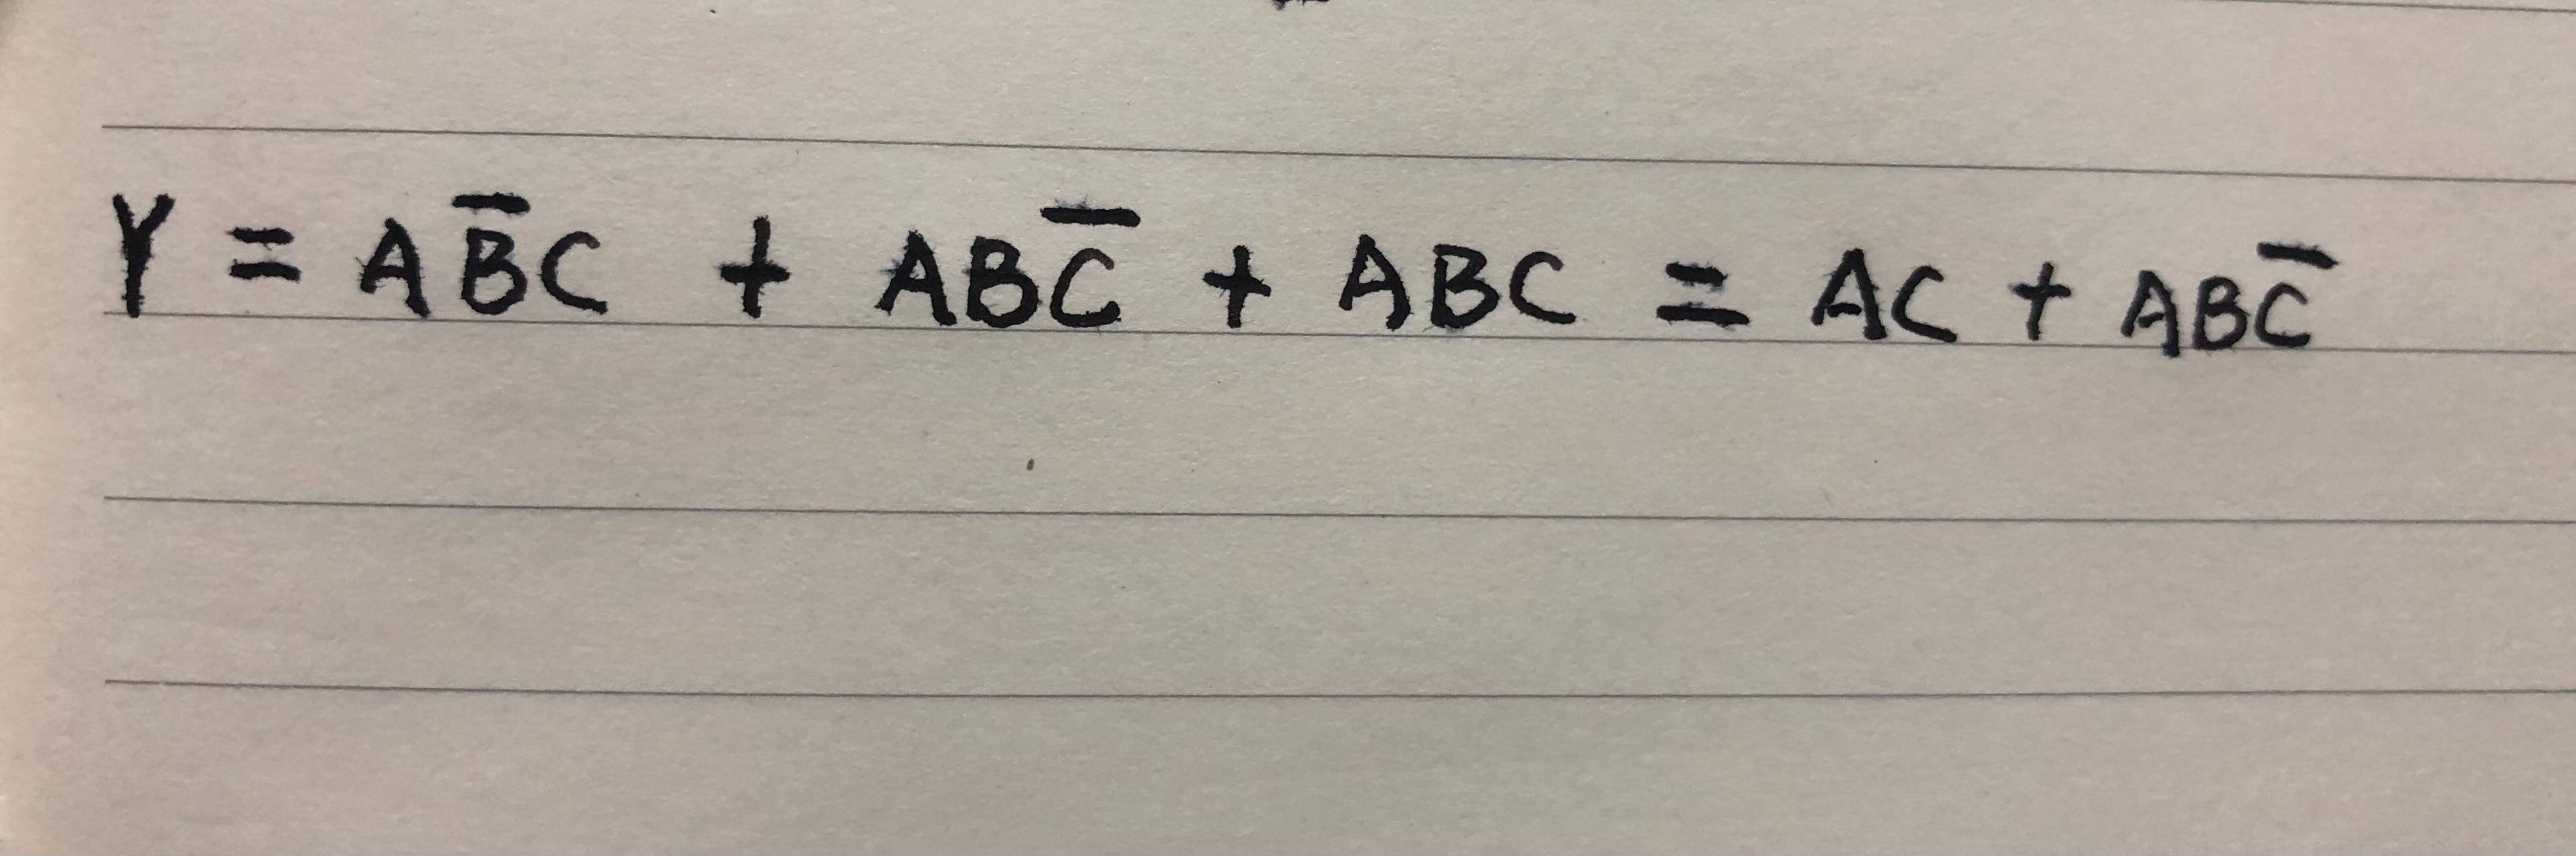 Y = AB̅C + ABC̅ + ABC = AC + ABC̅